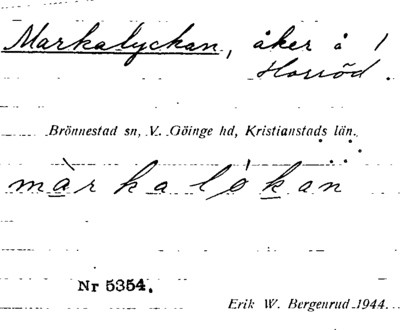 Markalyckan, åker å 1
Horröd.
Brönnestad sn, V. Göinge hd, Kristianstads län.
màrkaløkan
Nr 5354.
Erik W. Bergenrud 1944.